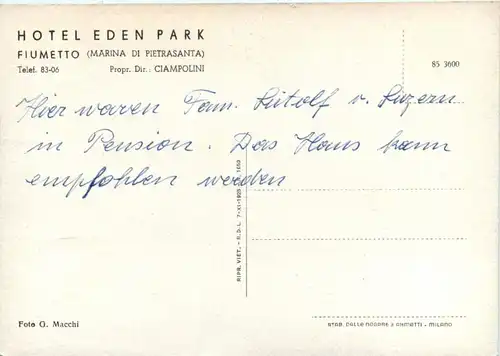 HOTEL EDEN PARK
FIUMETTO (MARINA DI PIETRASANTA)
Telef. 83-06 Propr. Dir.: CIAMPOLINI
85 3600
Hier waren Fam. Lütolf v. Luzern
in Pension. Das Haus kann
empfohlen werden
RIPR. VIET. - R.D.L. 7-XI-1925 N. 1950
Foto G. Macchi
STAB. DALLE NOGARE & ARMETTI - MILANO